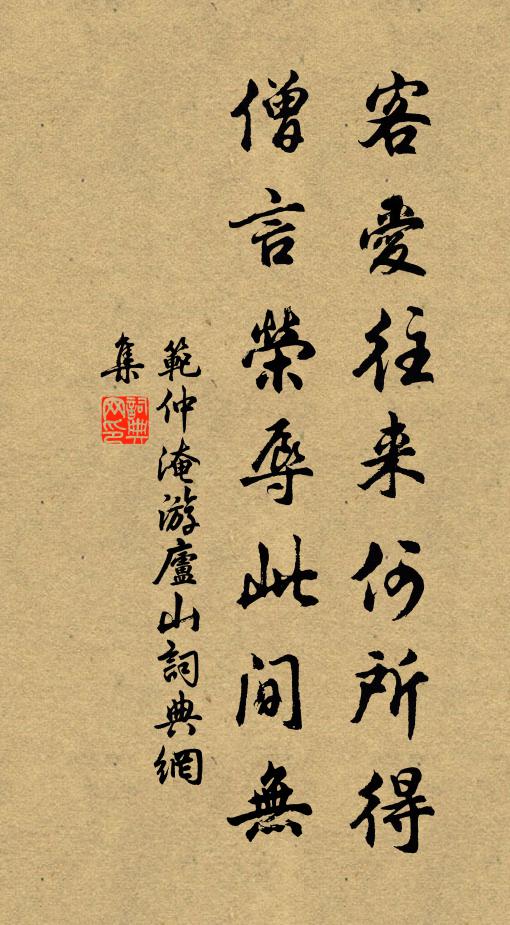 客愛往来何所得
僧言榮辱此間無
範仲淹游廬山詞典網
集
詞典
网印